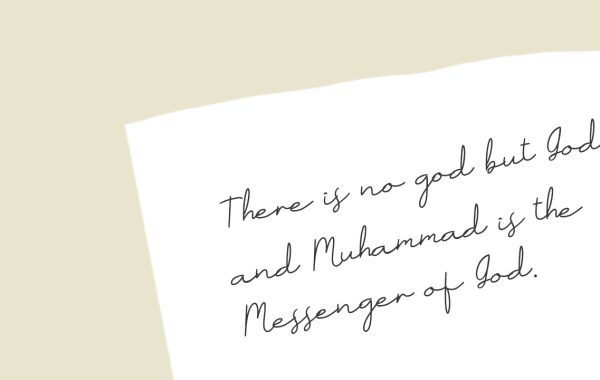 There is no god but God
and Muhammad is the
Messenger of God.